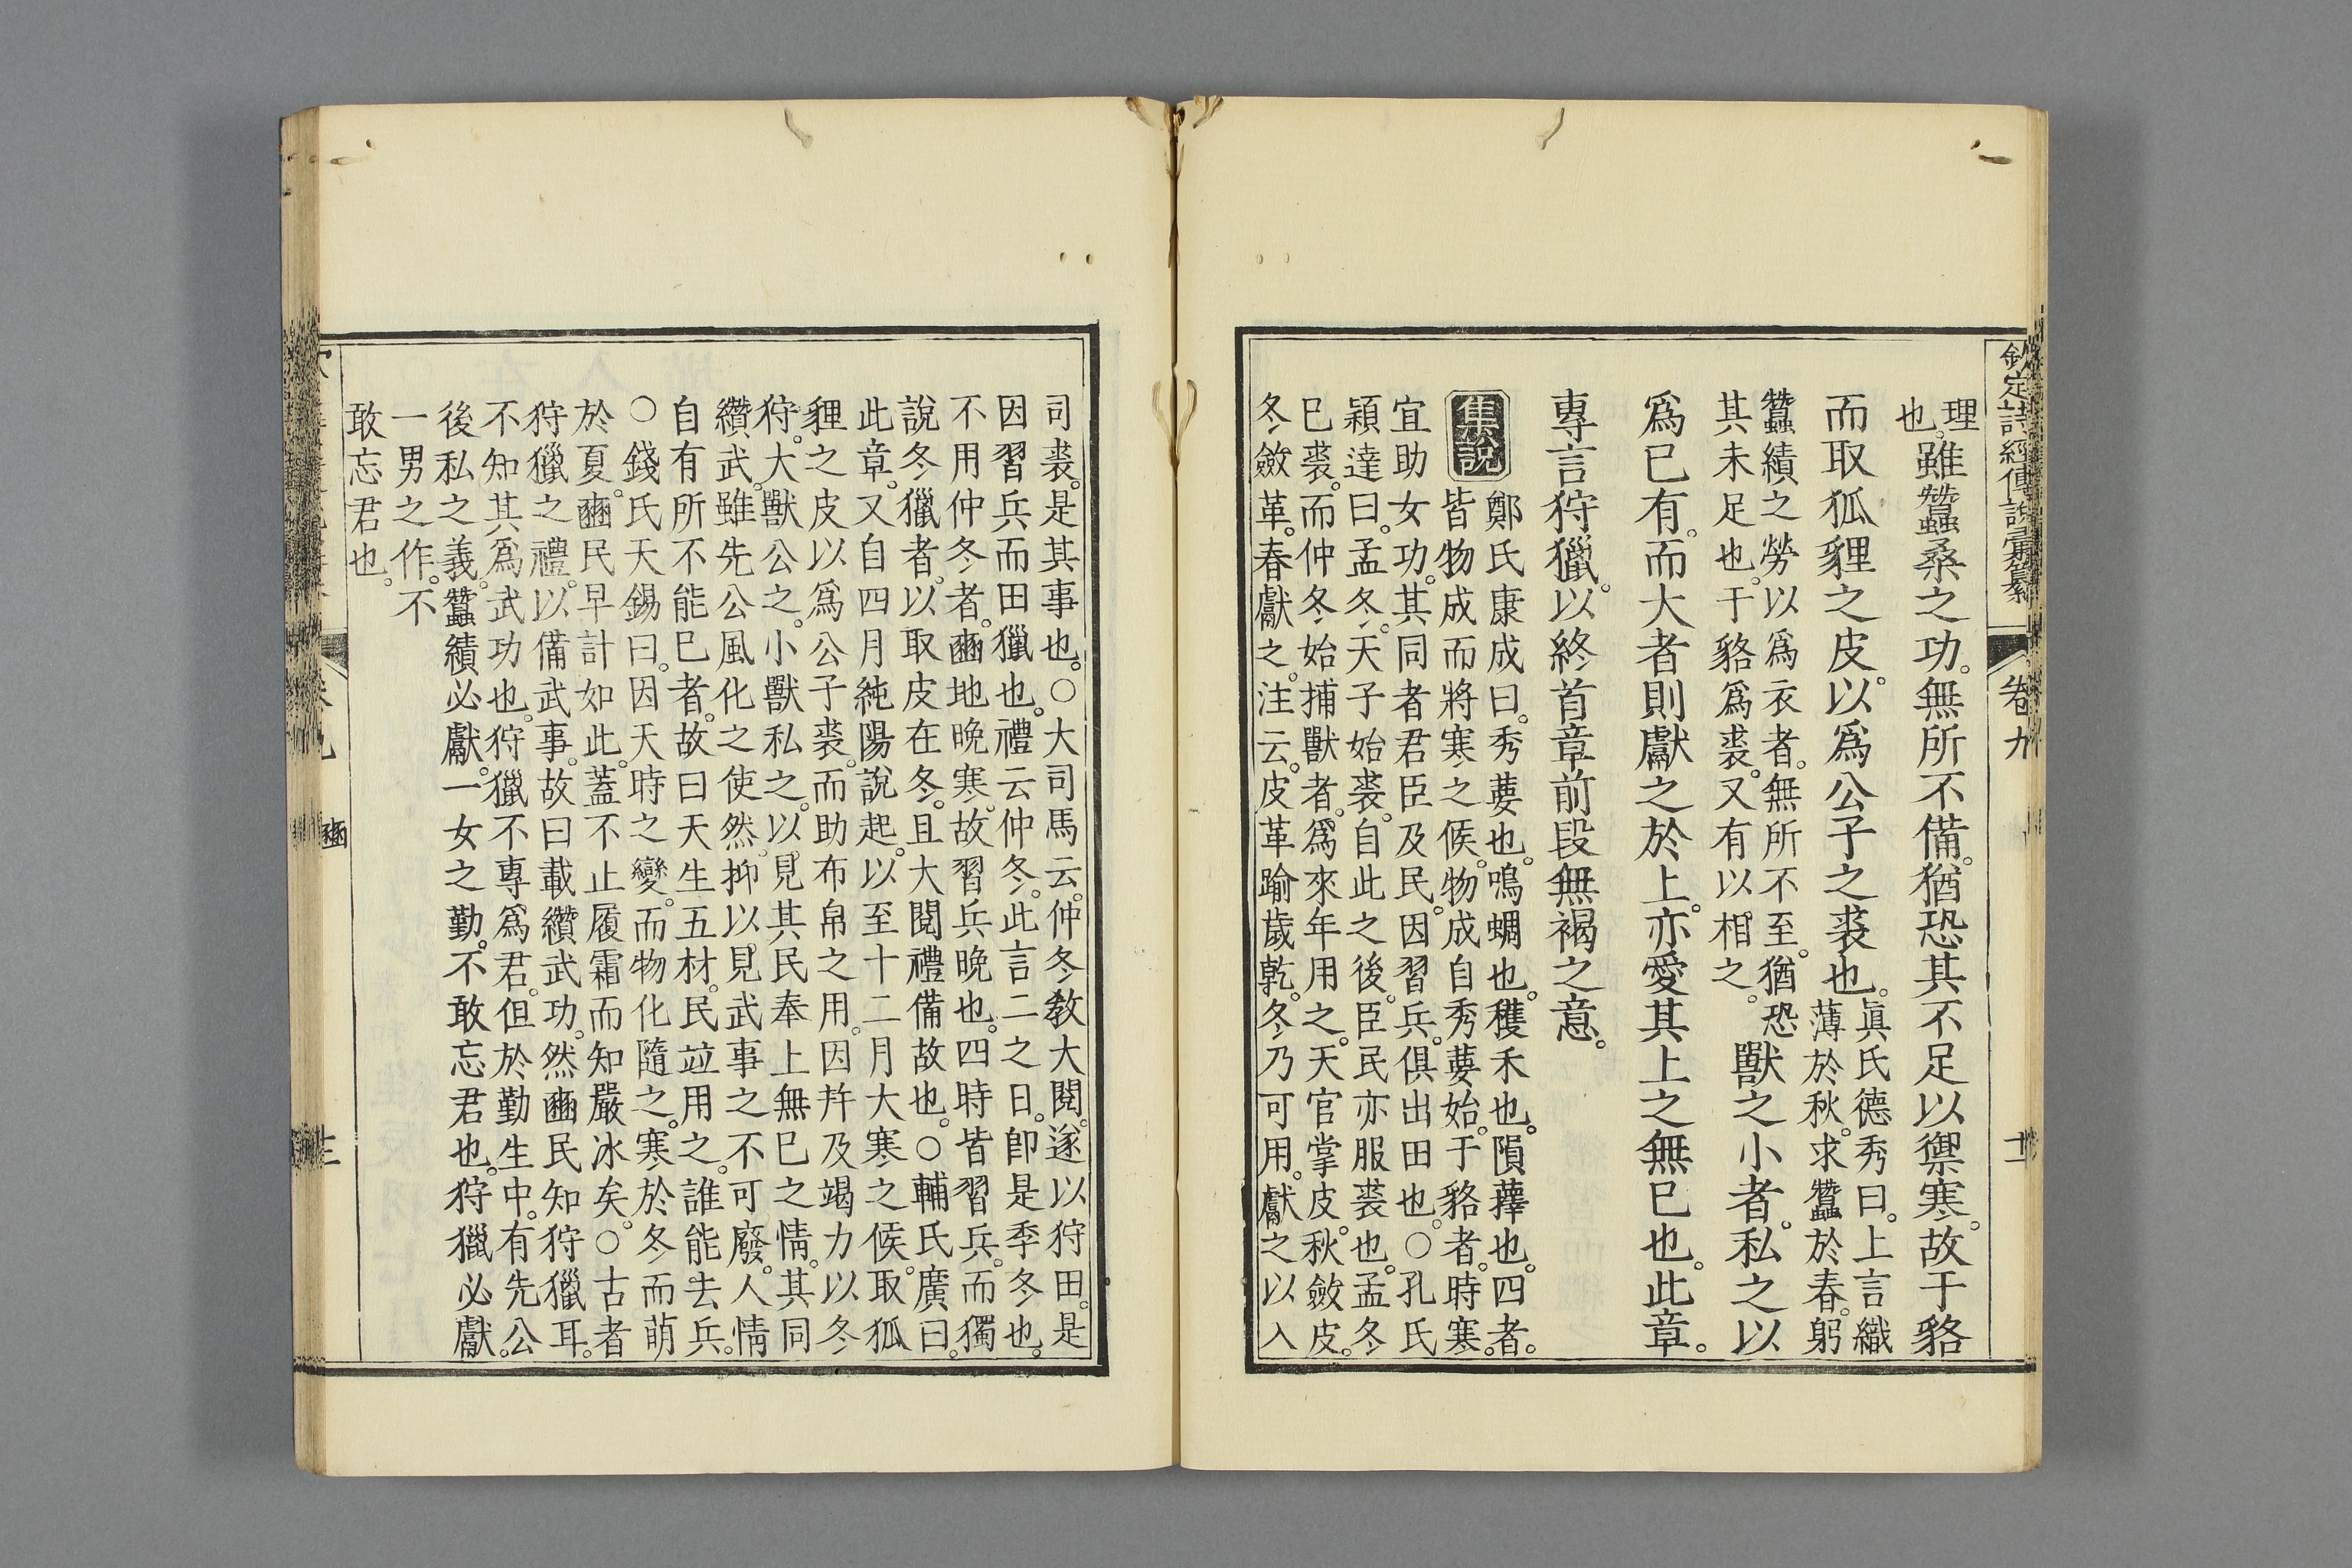 欽定詩經傳說彙纂
卷九
十二
理
也。雖蠶桑之功。無所不備。猶恐其不足以禦寒。故于貉
而取狐貍之皮。以爲公子之裘也。
眞氏德秀曰。上言織
薄於秋。求蠶於春。躬
蠶績之勞。以爲衣者。無所不至。猶恐
其未足也。于貉爲裘。又有以相之。
獸之小者。私之以
爲已有。而大者則獻之於上。亦愛其上之無已也。此章。
專言狩獵。以終首章前段無褐之意。
集說
鄭氏康成曰。秀葽也。鳴蜩也。穫禾也。隕蘀也。四者。
皆物成而將寒之候。物成自秀葽始。于貉者。時寒。
宜助女功。其同者君臣及民。因習兵。俱出田也。○孔氏
穎達曰。孟冬。天子始裘。自此之後。臣民亦服裘也。孟冬
已裘。而仲冬始捕獸者。爲來年用之。天官掌皮。秋斂皮。
冬斂革。春獻之。注云。皮革踰歲乾。冬乃可用。獻之以入
司裘。是其事也。○大司馬云。仲冬敎大閱。遂以狩田。是
因習兵而田獵也。禮云仲冬。此言二之日。卽是季冬也。
不用仲冬者。豳地晚寒。故習兵晚也。四時皆習兵。而獨
說冬獵者。以取皮在冬。且大閱禮備故也。○輔氏廣曰。
此章。又自四月純陽說起。以至十二月大寒之候。取狐
貍之皮以爲公子裘。而助布帛之用。因幷及竭力以冬
狩。大獸公之。小獸私之。以見其民奉上無已之情。其同
纘武。雖先公風化之使然。抑以見武事之不可廢。人情
自有所不能已者。故曰天生五材。民竝用之。誰能去兵。
○錢氏天錫曰。因天時之變。而物化隨之。寒於冬而萌
於夏。豳民早計如此。蓋不止履霜而知嚴冰矣。○古者
狩獵之禮。以備武事。故曰載纘武功。然豳民知狩獵耳。
不知其爲武功也。狩獵不專爲君。但於勤生中。有先公
後私之義。蠶績必獻。一女之勤。不敢忘君也。狩獵必獻。
一男之作。不
敢忘君也。
豳